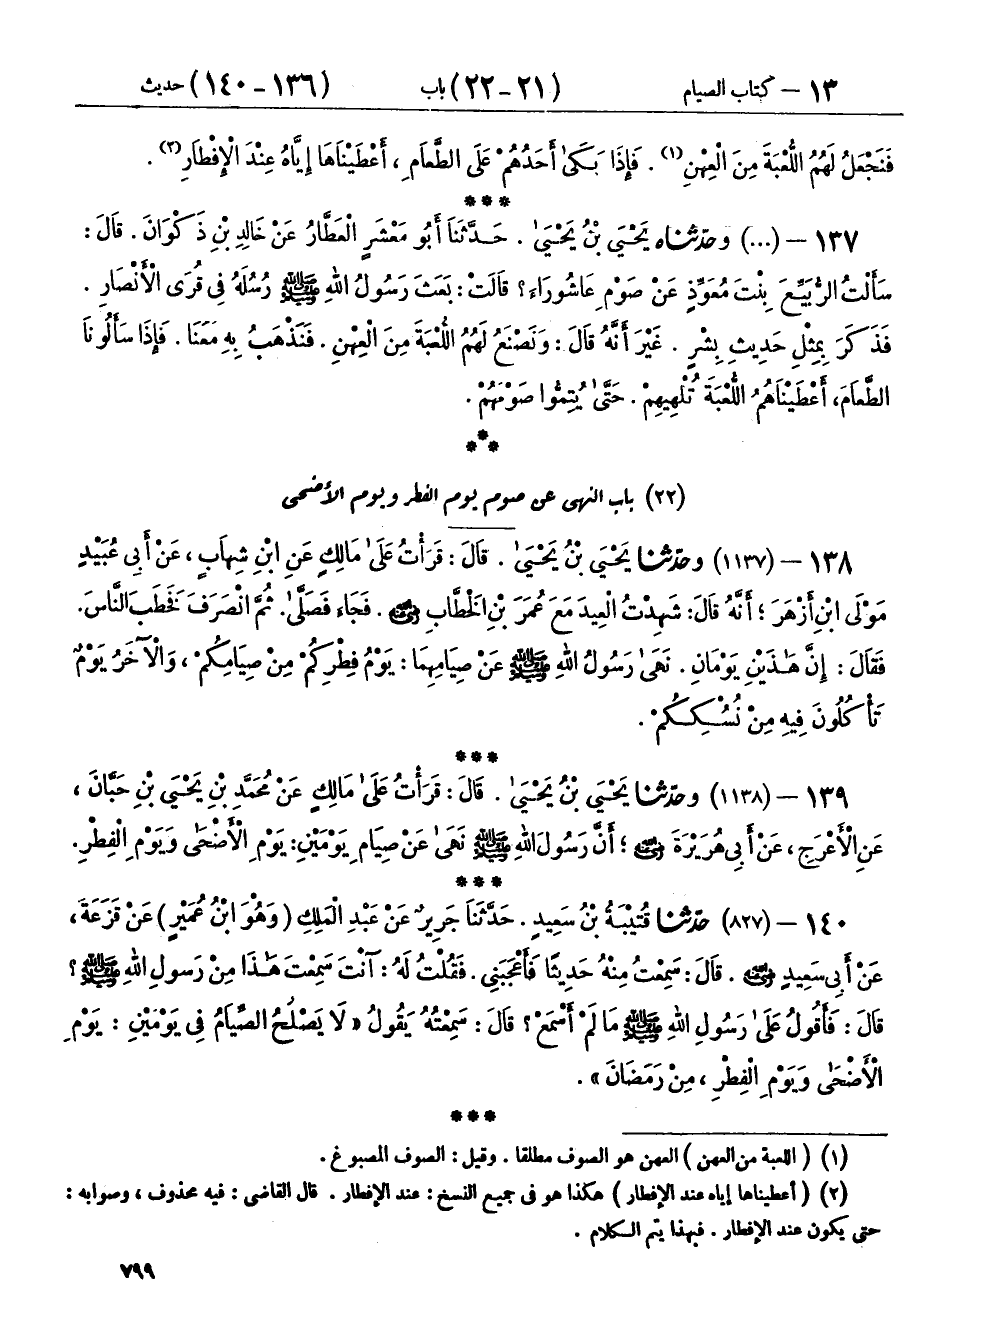 ١٣ – كتاب الصيام (٢١-٢٢) باب (١٣٦-١٤٠) حديث
فَنَجْعَلُ لَهُمُ اللُّعْبَةَ مِنَ الْعِهْنِ(١) . فَإِذَا بَكَىٰ أَحَدُهُمْ عَلَى الطَّعَامِ ، أَعْطَيْنَاهَا إِيَّاهُ عِنْدَ الْإِفْطَارِ(٢) .
***
١٣٧ – (...) وحدّثناه يَحْيَىٰ بْنُ يَحْيَىٰ . حَدَّثَنَا أَبُو مَعْشَرٍ الْعَطَّارُ عَنْ خَالِدِ بْنِ ذَكْوَانَ . قَالَ :
سَأَلْتُ الرُّبَيِّعَ بِنْتَ مُعَوِّذٍ عَنْ صَوْمِ عَاشُورَاءَ ؟ قَالَتْ : بَعَثَ رَسُولُ اللهِ ﷺ رُسُلَهُ فِي قُرَى الْأَنْصَارِ .
فَذَكَرَ بِمِثْلِ حَدِيثِ بِشْرٍ . غَيْرَ أَنَّهُ قَالَ : وَنَصْنَعُ لَهُمُ اللُّعْبَةَ مِنَ الْعِهْنِ . فَنَذْهَبُ بِهِ مَعَنَا . فَإِذَا سَأَلُونَا
الطَّعَامَ، أَعْطَيْنَاهُمُ اللُّعْبَةَ تُلْهِيهِمْ . حَتَّىٰ يُتِمُّوا صَوْمَهُمْ .
***
(٢٢) باب النهى عن صوم يوم الفطر ويوم الأضحى
١٣٨ – (١١٣٧) وحدّثنا يَحْيَىٰ بْنُ يَحْيَىٰ . قَالَ : قَرَأْتُ عَلَىٰ مَالِكٍ عَنِ ابْنِ شِهَابٍ ، عَنْ أَبِي عُبَيْدٍ
مَوْلَى ابْنِ أَزْهَرَ ؛ أَنَّهُ قَالَ : شَهِدْتُ الْعِيدَ مَعَ عُمَرَ بْنِ الْخَطَّابِ رضي الله عنه . فَجَاءَ فَصَلَّىٰ. ثُمَّ انْصَرَفَ فَخَطَبَ النَّاسَ.
فَقَالَ : إِنَّ هَٰذَيْنِ يَوْمَانِ . نَهَىٰ رَسُولُ اللهِ ﷺ عَنْ صِيَامِهِمَا : يَوْمُ فِطْرِكُمْ مِنْ صِيَامِكُمْ ، وَالْآخَرُ يَوْمٌ
تَأْكُلُونَ فِيهِ مِنْ نُسُكِكُمْ .
***
١٣٩ – (١١٣٨) وحدّثنا يَحْيَىٰ بْنُ يَحْيَىٰ . قَالَ : قَرَأْتُ عَلَىٰ مَالِكٍ عَنْ مُحَمَّدِ بْنِ يَحْيَىٰ بْنِ حَبَّانَ ،
عَنِ الْأَعْرَجِ ، عَنْ أَبِي هُرَيْرَةَ رضي الله عنه ؛ أَنَّ رَسُولَ اللهِ ﷺ نَهَىٰ عَنْ صِيَامِ يَوْمَيْنِ: يَوْمِ الْأَضْحَىٰ وَيَوْمِ الْفِطْرِ.
***
١٤٠ – (٨٢٧) حدّثنا قُتَيْبَةُ بْنُ سَعِيدٍ . حَدَّثَنَا جَرِيرٌ عَنْ عَبْدِ الْمَلِكِ ( وَهُوَ ابْنُ عُمَيْرٍ ) عَنْ قَزَعَةَ ،
عَنْ أَبِي سَعِيدٍ رضي الله عنه . قَالَ : سَمِعْتُ مِنْهُ حَدِيثًا فَأَعْجَبَنِي . فَقُلْتُ لَهُ : آنْتَ سَمِعْتَ هَٰذَا مِنْ رَسُولِ اللهِ ﷺ ؟
قَالَ : فَأَقُولُ عَلَىٰ رَسُولِ اللهِ ﷺ مَا لَمْ أَسْمَعْ ؟ قَالَ : سَمِعْتُهُ يَقُولُ « لَا يَصْلُحُ الصِّيَامُ فِي يَوْمَيْنِ : يَوْمِ
الْأَضْحَىٰ وَيَوْمِ الْفِطْرِ ، مِنْ رَمَضَانَ » .
***
(١) ( اللعبة من العهن ) العهن هو الصوف مطلقا . وقيل : الصوف المصبوغ .
(٢) ( أعطيناها إياه عند الإفطار ) هكذا هو فى جميع النسخ : عند الإفطار . قال القاضى : فيه محذوف ، وصوابه :
حتى يكون عند الإفطار . فبهذا يتم الكلام .
٧٩٩